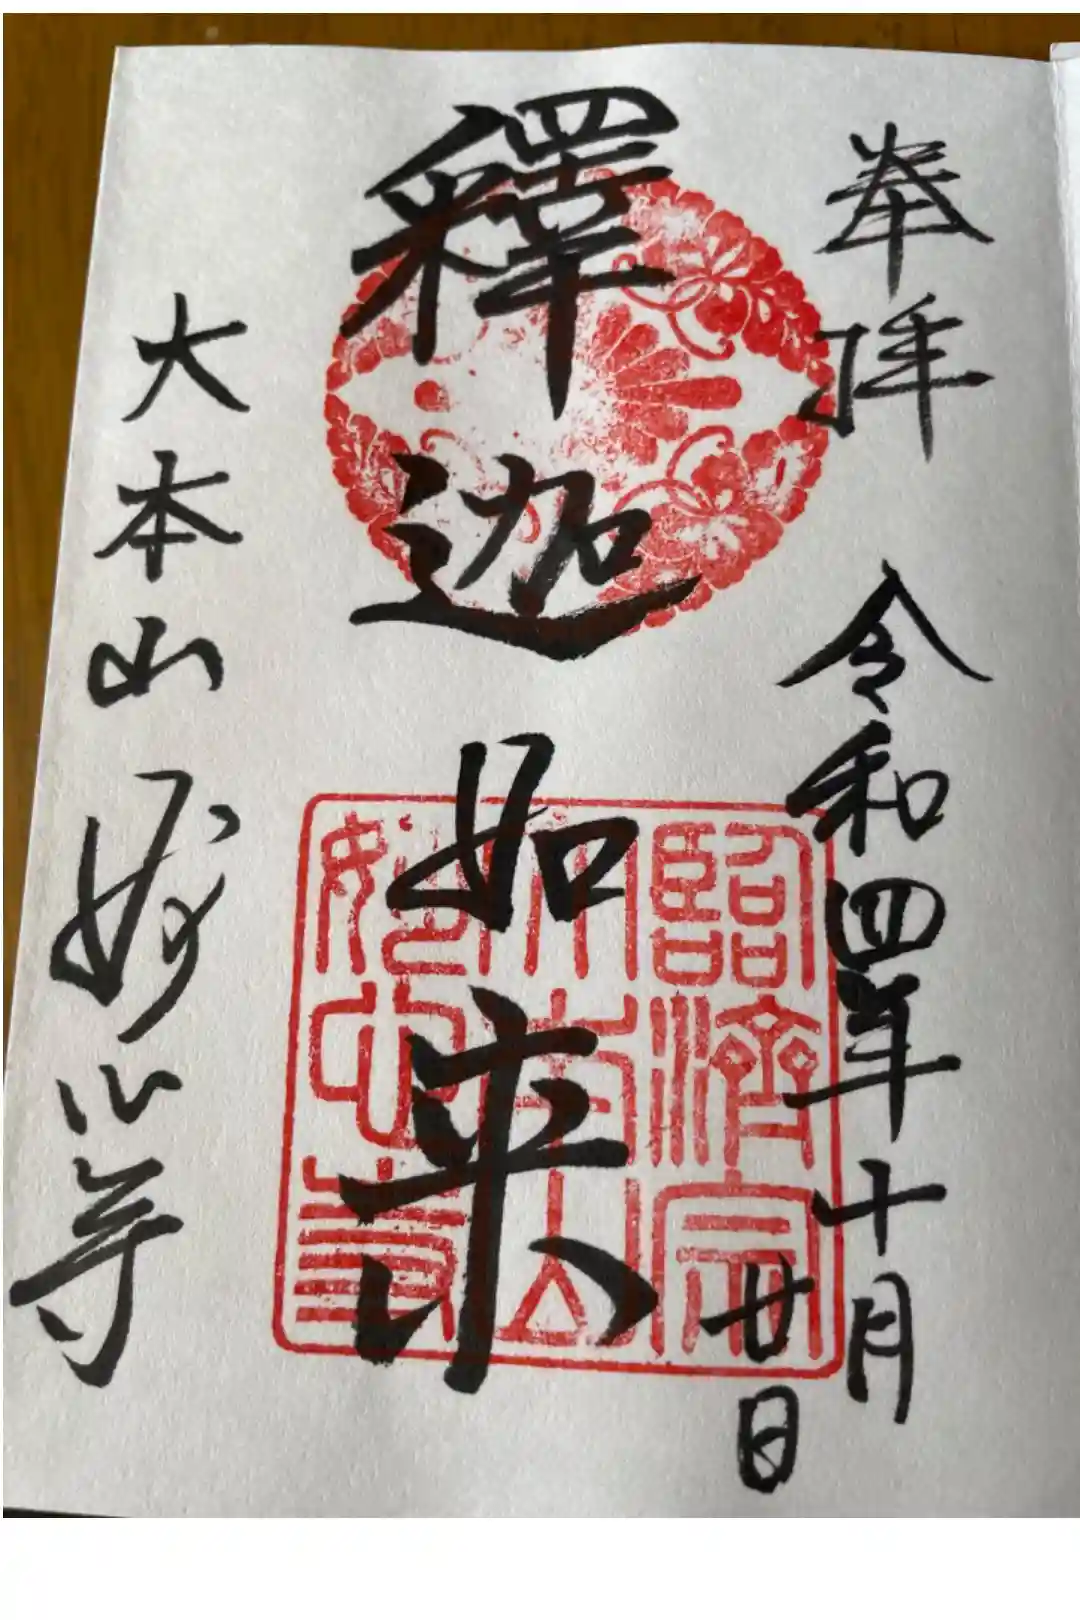 奉拝
令和四年十月
廿日
釋迦如来
臨済宗
大本山
妙心寺
大本山妙心寺